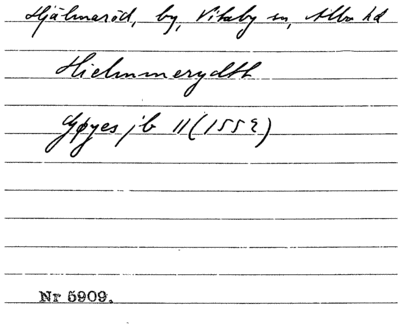 Hjälmaröd, by, Vitaby sn, Albo hd
Hielmmerydth
Gøyes jb 11 (1552)
Nr 5909.